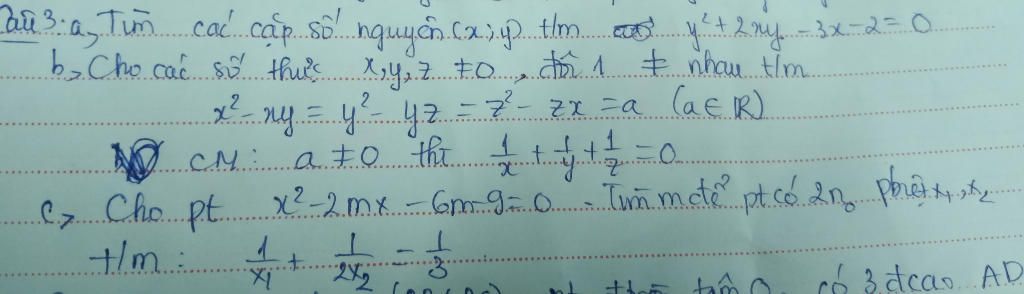 Câu 3: a, Tìm các cặp số nguyên (x; y) t/m y² + 2xy - 3x - 2 = 0
b, Cho các số thực x, y, z ≠ 0, đôi 1 ≠ nhau t/m
x² - xy = y² - yz = z² - zx = a (a ∈ R)
CM: a ≠ 0 thì 1/x + 1/y + 1/z = 0
c, Cho pt x² - 2mx - 6m - 9 = 0. Tìm m để pt có 2n₀ phbiệt x₁, x₂
t/m: 1/x₁ + 1/2x₂ = 1/3
tâm O có 3 đcao AD